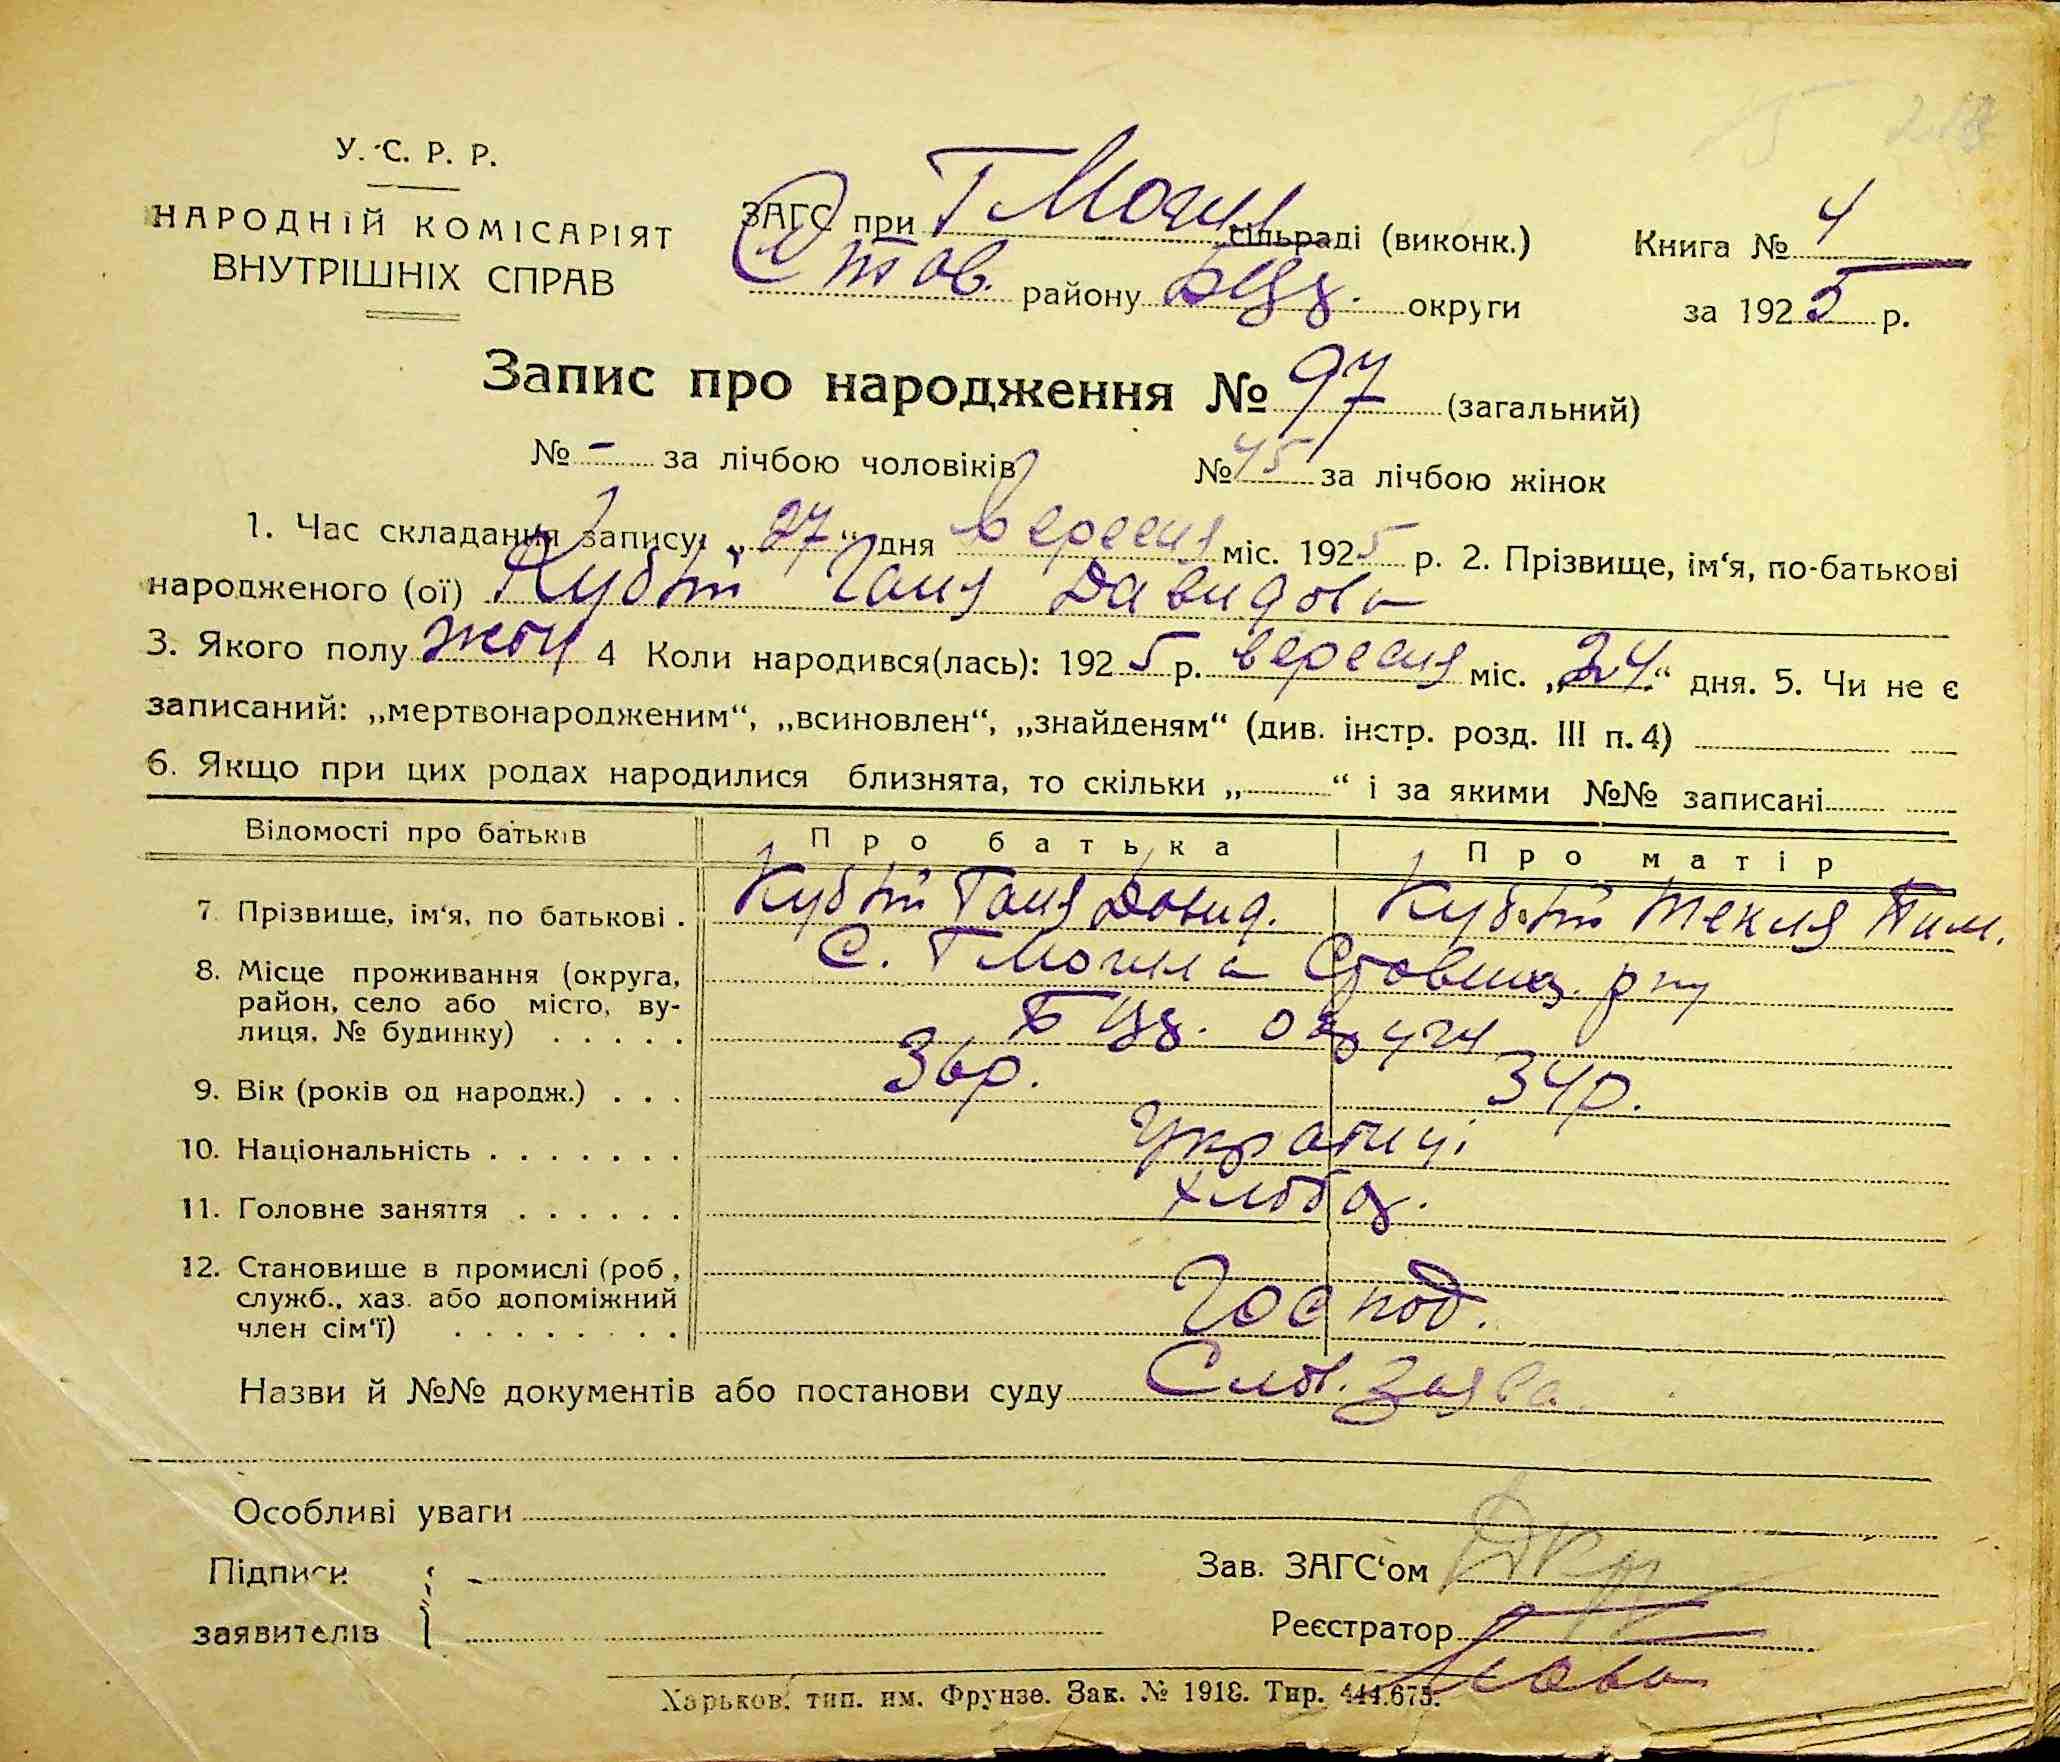 У. С. Р. Р.
НАРОДНІЙ КОМІСАРІЯТ
ВНУТРІШНІХ СПРАВ
ЗАГС при Т Могил сільраді (виконк.)
Став. району БЦ округи
Книга № 4
за 1925 р.
Запис про народження № 97 (загальний)
№ - за лічбою чоловіків № 45 за лічбою жінок
1. Час складання запису: „27“ дня вересня міс. 1925 р. 2. Прізвище, ім‘я, по-батькові
народженого (ої) Кубій Ганя Давидова
3. Якого полу жін 4 Коли народився(лась): 1925 р. вересня міс. „24“ дня. 5. Чи не є
записаний: „мертвонародженим“, „всиновлен“, „знайденям“ (див. інстр. розд. III п. 4)
6. Якщо при цих родах народилися близнята, то скільки „ “ і за якими №№ записані
Відомості про батьків Про батька Про матір
7. Прізвище, ім‘я, по батькові . Кубій Давид. Кубій Текля Тим.
8. Місце проживання (округа,
район, село або місто, ву-
лиця, № будинку) . . . . .
С. Т Могила Ставищ. р ну
БЦ округи
9. Вік (років од народж.) . . . 36р. 34р.
10. Національність . . . . . . . Українці
11. Головне заняття . . . . . . хліба
12. Становише в промислі (роб.,
служб., хаз. або допоміжний
член сім‘ї) . . . . . . . .
Господ.
Назви й №№ документів або постанови суду Слов. заява
Особливі уваги
Підписи
заявителів
Зав. ЗАГС‘ом
Реєстратор
Харьков. тип. им. Фрунзе. Зак. № 1918. Тир. 444.675.